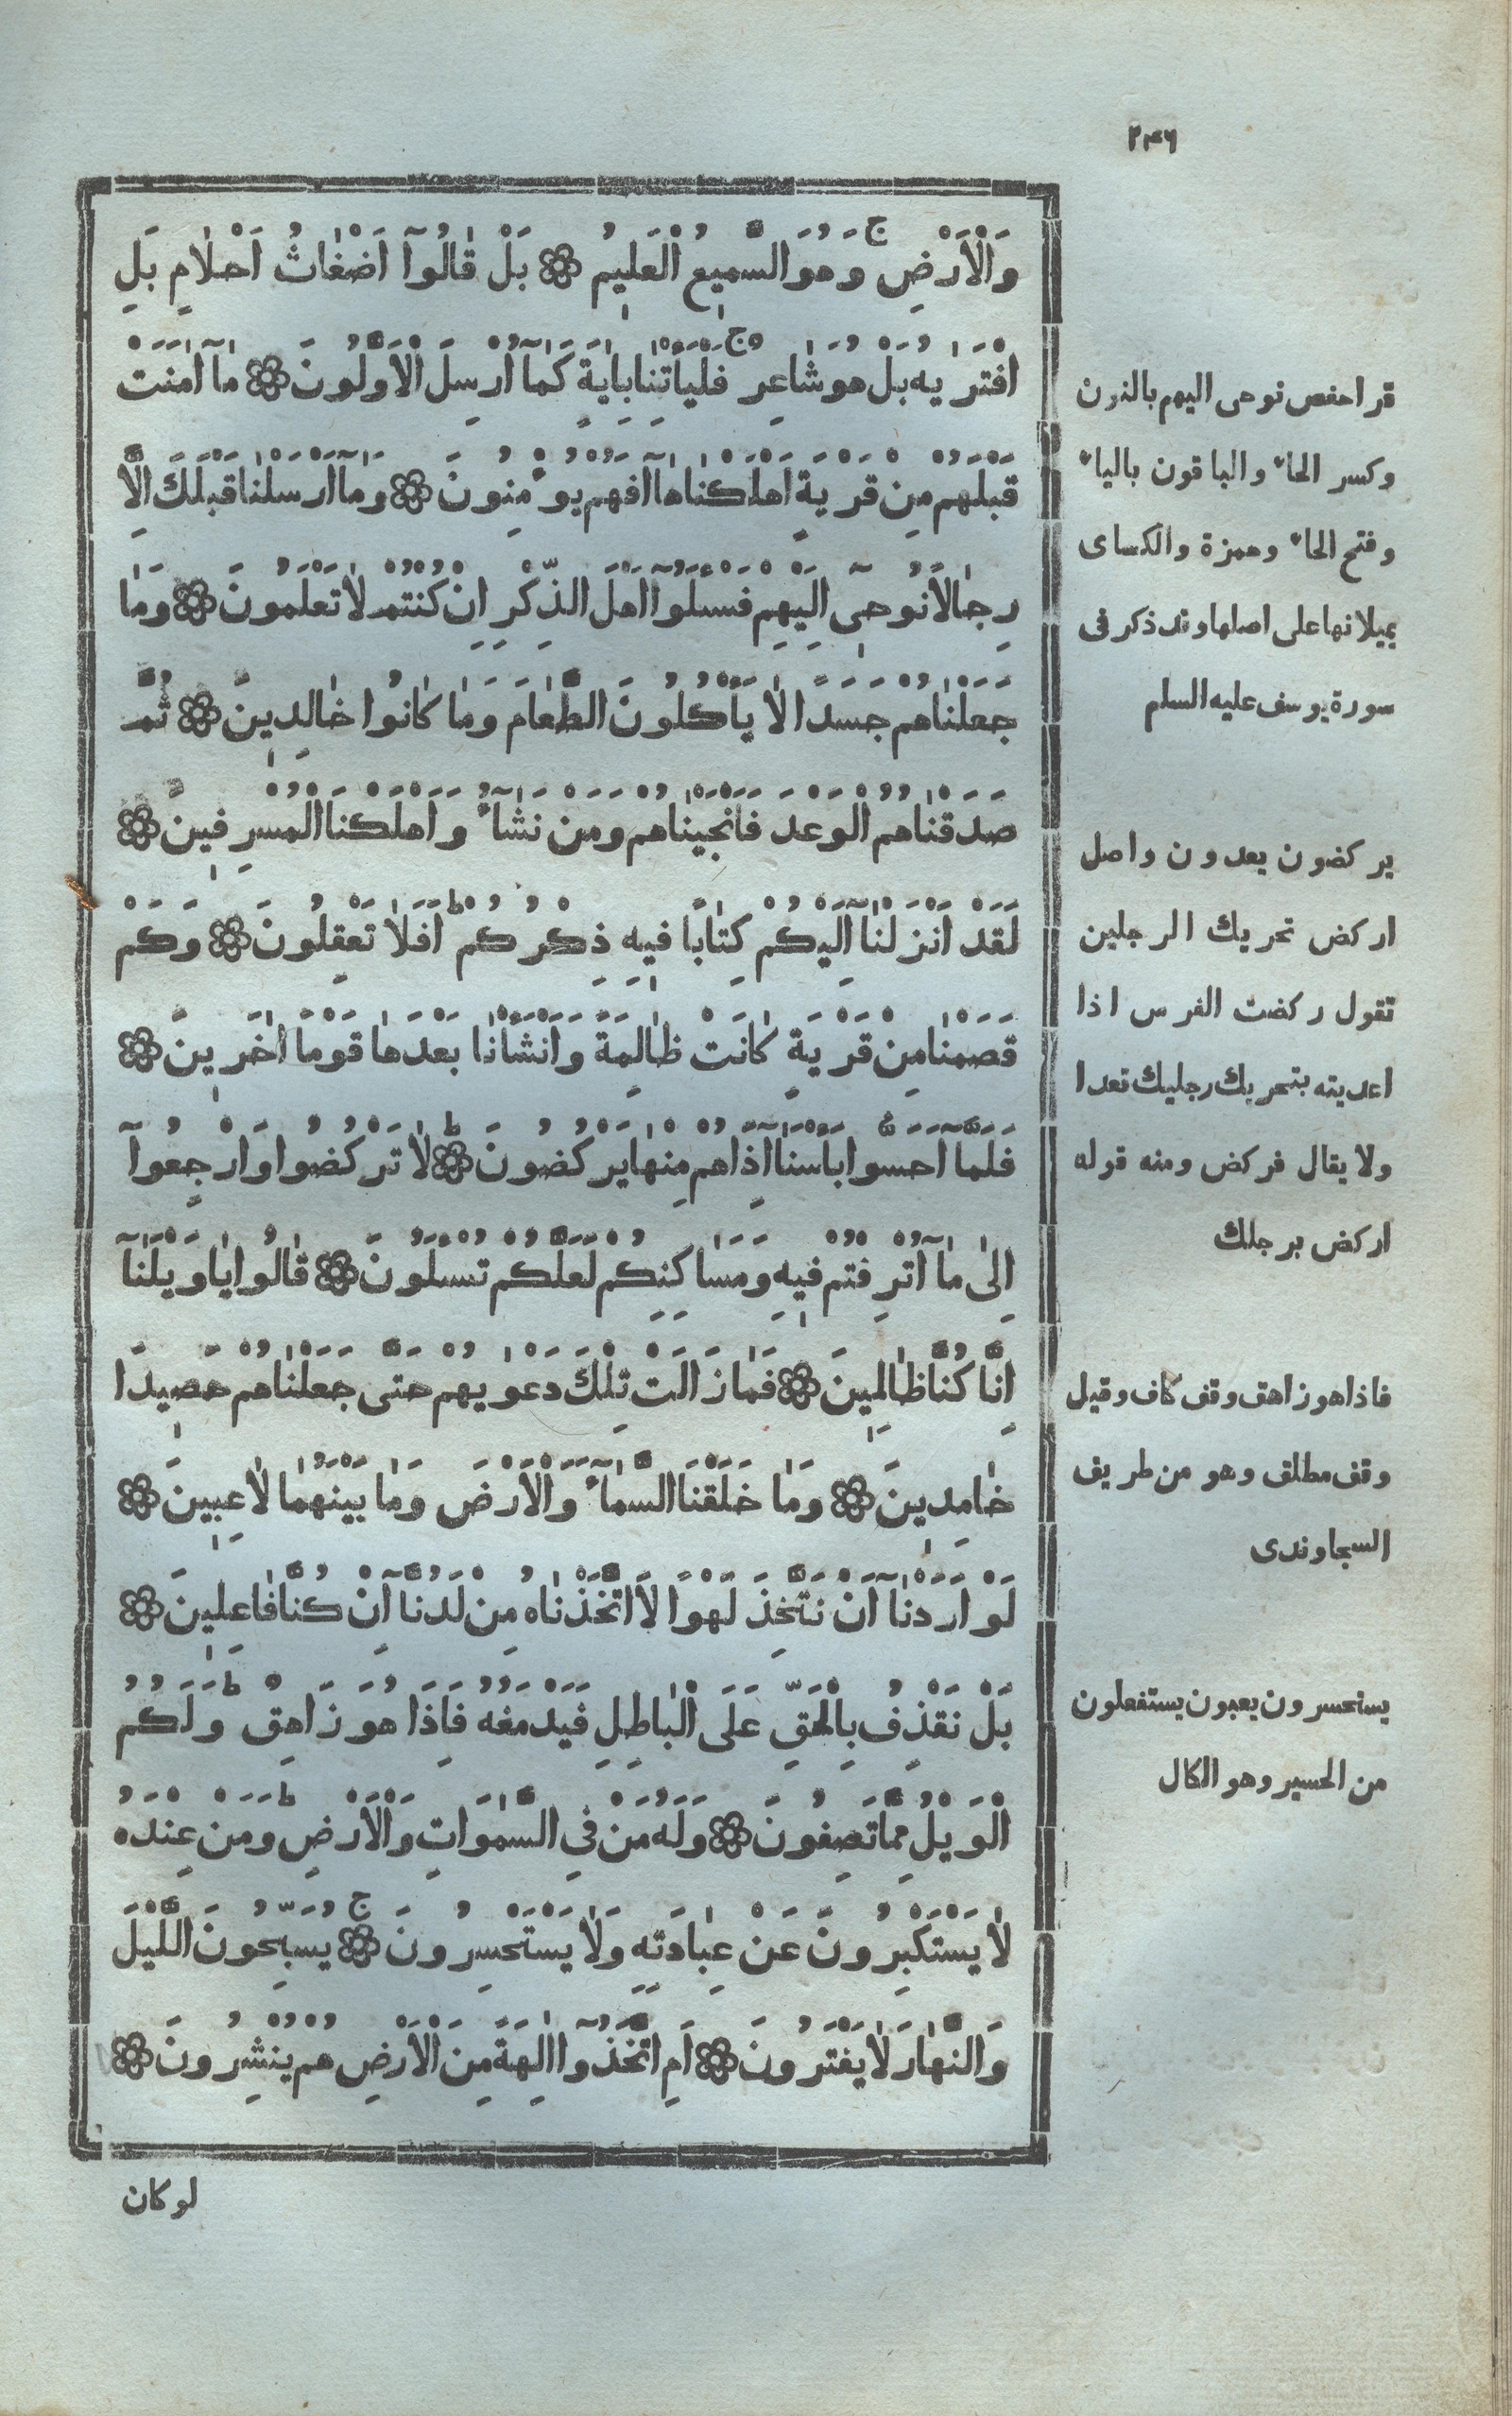 ٢٤٦
وَالْاَرْضِ ج وَهُوَ السَّمِيعُ الْعَلِيمُ ۞ بَلْ قَالُوآ اَضْغَاثُ اَحْلَامٍ بَلِ
افْتَرٰيهُ بَلْ هُوَ شَاعِرٌ ج فَلْيَأْتِنَا بِاٰيَةٍ كَمَآ اُرْسِلَ الْاَوَّلُونَ ۞ مَآ اٰمَنَتْ
قَبْلَهُمْ مِنْ قَرْيَةٍ اَهْلَكْنَاهَآ اَفَهُمْ يُؤْمِنُونَ ۞ وَمَآ اَرْسَلْنَا قَبْلَكَ اِلَّا
رِجَالًا نُوحِىٓ اِلَيْهِمْ فَسْئَلُوٓا اَهْلَ الذِّكْرِ اِنْ كُنْتُمْ لَا تَعْلَمُونَ ۞ وَمَا
جَعَلْنَاهُمْ جَسَدًا لَا يَأْكُلُونَ الطَّعَامَ وَمَا كَانُوا خَالِدِينَ ۞ ثُمَّ
صَدَقْنَاهُمُ الْوَعْدَ فَاَنْجَيْنَاهُمْ وَمَنْ نَشَآءُ وَاَهْلَكْنَا الْمُسْرِفِينَ ۞
لَقَدْ اَنْزَلْنَآ اِلَيْكُمْ كِتَابًا فِيهِ ذِكْرُكُمْ ط اَفَلَا تَعْقِلُونَ ۞ وَكَمْ
قَصَمْنَا مِنْ قَرْيَةٍ كَانَتْ ظَالِمَةً وَاَنْشَأْنَا بَعْدَهَا قَوْمًا اٰخَرِينَ ۞
فَلَمَّآ اَحَسُّوا بَأْسَنَآ اِذَا هُمْ مِنْهَا يَرْكُضُونَ ط ۞ لَا تَرْكُضُوا وَارْجِعُوٓا
اِلٰى مَآ اُتْرِفْتُمْ فِيهِ وَمَسَاكِنِكُمْ لَعَلَّكُمْ تُسْئَلُونَ ۞ قَالُوا يَا وَيْلَنَآ
اِنَّا كُنَّا ظَالِمِينَ ۞ فَمَا زَالَتْ تِلْكَ دَعْوٰيهُمْ حَتّٰى جَعَلْنَاهُمْ حَصِيدًا
خَامِدِينَ ۞ وَمَا خَلَقْنَا السَّمَآءَ وَالْاَرْضَ وَمَا بَيْنَهُمَا لَاعِبِينَ ۞
لَوْ اَرَدْنَآ اَنْ نَتَّخِذَ لَهْوًا لَاتَّخَذْنَاهُ مِنْ لَدُنَّآ اِنْ كُنَّا فَاعِلِينَ ۞
بَلْ نَقْذِفُ بِالْحَقِّ عَلَى الْبَاطِلِ فَيَدْمَغُهُ فَاِذَا هُوَ زَاهِقٌ ط وَلَكُمُ
الْوَيْلُ مِمَّا تَصِفُونَ ۞ وَلَهُ مَنْ فِى السَّمٰوَاتِ وَالْاَرْضِ ط وَمَنْ عِنْدَهُ
لَا يَسْتَكْبِرُونَ عَنْ عِبَادَتِهِ وَلَا يَسْتَحْسِرُونَ ج ۞ يُسَبِّحُونَ اللَّيْلَ
وَالنَّهَارَ لَا يَفْتَرُونَ ۞ اَمِ اتَّخَذُوٓا اٰلِهَةً مِنَ الْاَرْضِ هُمْ يُنْشِرُونَ ۞
لو كان
قرا حفص نوحى اليهم بالنون
وكسر الحاء والباقون بالياء
وفتح الحاء وحمزة والكساى
يميلانها على اصلها وقد ذكر فى
سورة يوسف عليه السلم
يركضون يعدون واصل
اركض تحريك الرجلين
تقول ركضت الفرس اذا
اعديته بتحريك رجليك تعدا
ولا يقال فركض ومنه قوله
اركض برجلك
فاذا هو زاهق وقف كاف وقيل
وقف مطلق وهو من طريق
السجاوندى
يستحسرون يعيون يستفعلون
من الحسير وهو الكال